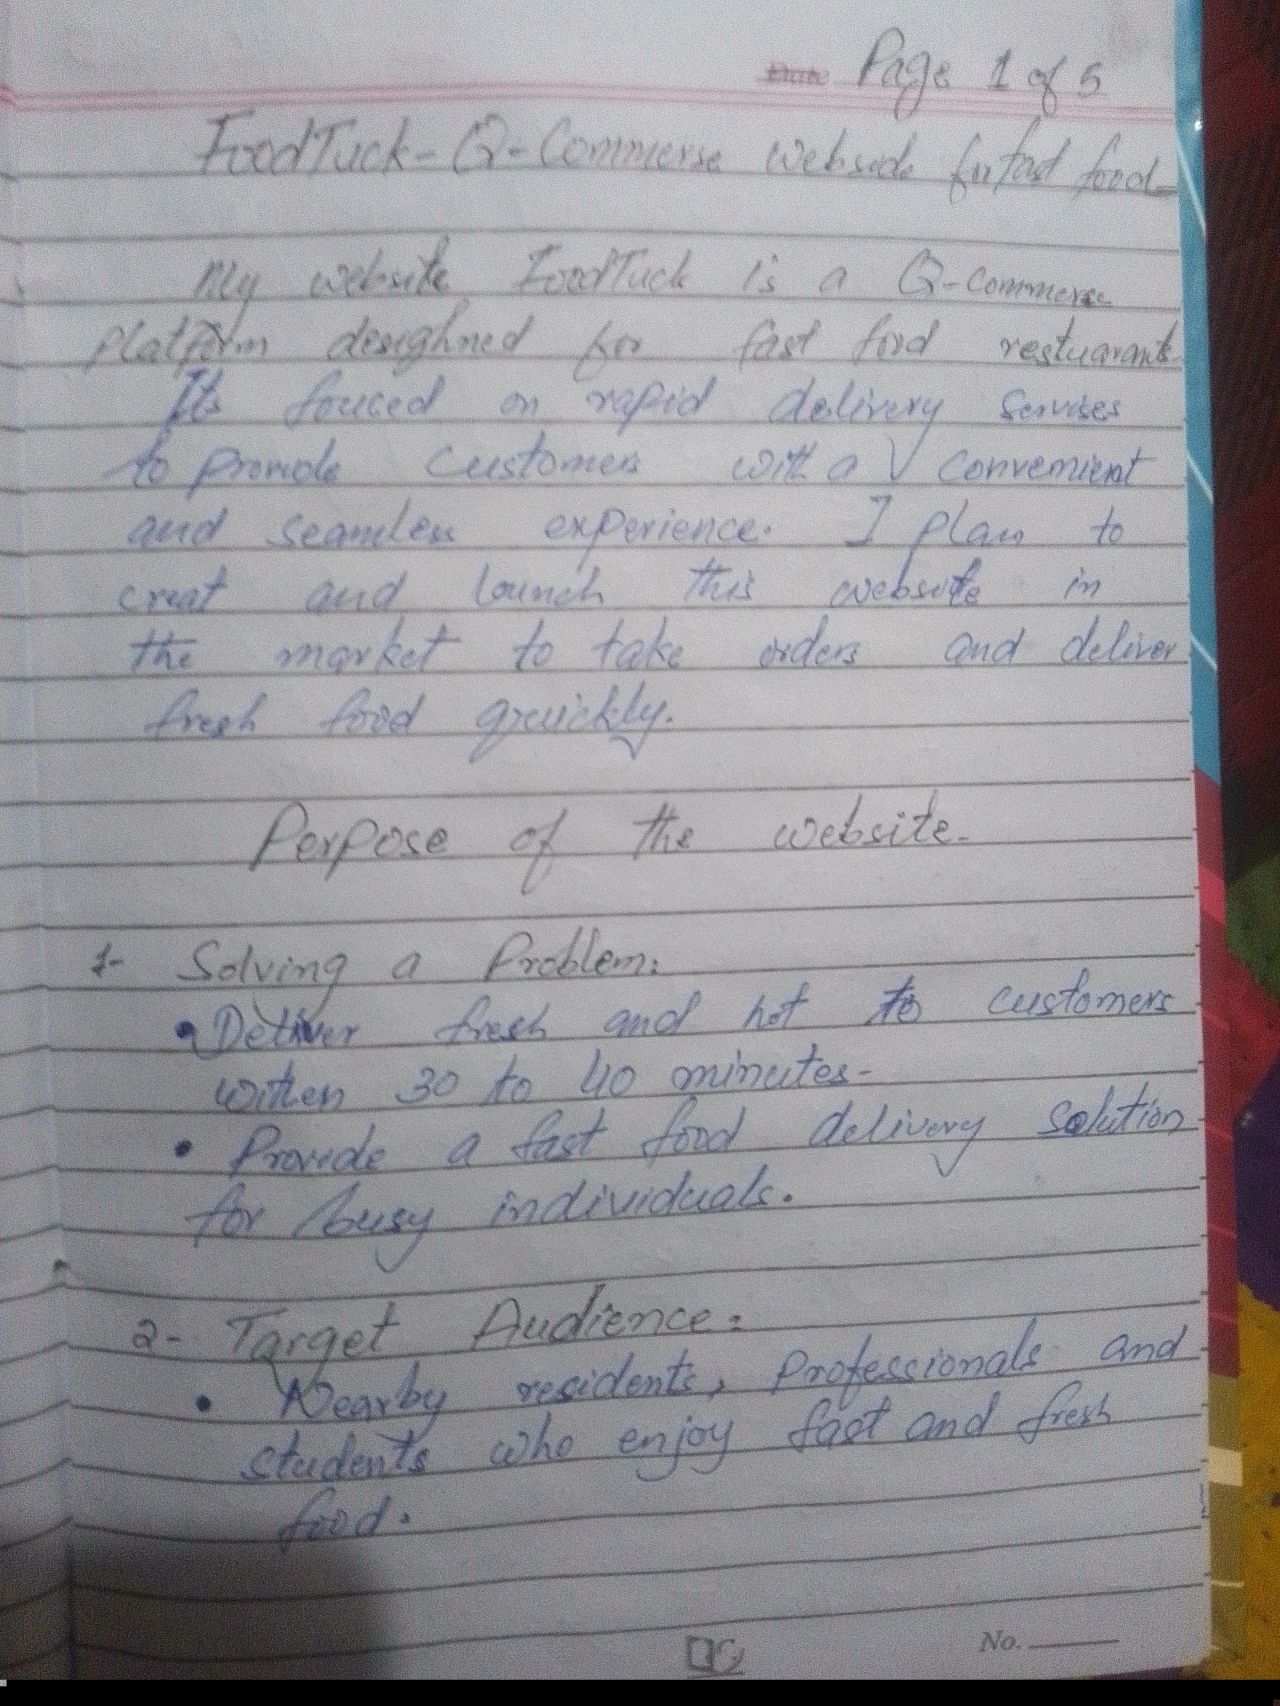 Page 1 of 5
FoodTuck - Q-Commerse website for fast food
My website FoodTuck is a Q-Commerce
platform desighned for fast food restuarants
Its fouced on rapid delivery servises
to provide customers with a convenient
and seamless experience. I plan to
creat and launch this website in
the market to take orders and deliver
fresh food qruickly.
Perpose of the website.
1- Solving a Problem:
• Deliver fresh and hot to customers
within 30 to 40 minutes-
• Provide a fast food delivery solution
for busy individuals.
2- Target Audience:
• Nearby residents, professionals and
students who enjoy fast and fresh
food.
No.